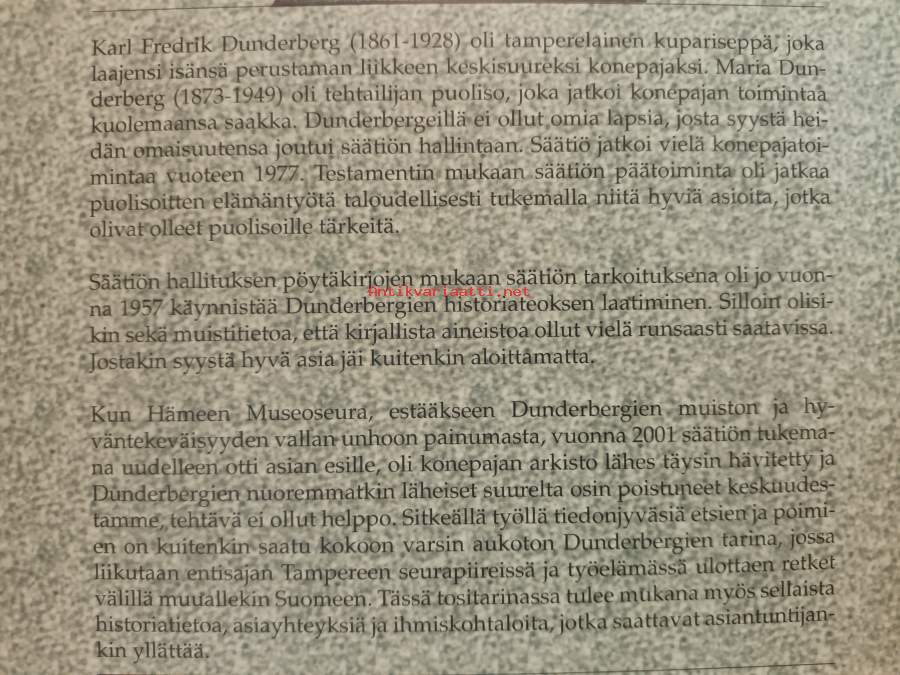 Karl Fredrik Dunderberg (1861-1928) oli tamperelainen kupariseppä, joka
laajensi isänsä perustaman liikkeen keskisuureksi konepajaksi. Maria Dun-
derberg (1873-1949) oli tehtailijan puoliso, joka jatkoi konepajan toimintaa
kuolemaansa saakka. Dunderbergeillä ei ollut omia lapsia, josta syystä hei-
dän omaisuutensa joutui säätiön hallintaan. Säätiö jatkoi vielä konepajatoi-
mintaa vuoteen 1977. Testamentin mukaan säätiön päätoiminta oli jatkaa
puolisoitten elämäntyötä taloudellisesti tukemalla niitä hyviä asioita, jotka
olivat olleet puolisoille tärkeitä.
Säätiön hallituksen pöytäkirjojen mukaan säätiön tarkoituksena oli jo vuon-
Antikvariaatti.net
na 1957 käynnistää Dunderbergien historiateoksen laatiminen. Silloin olisi-
kin sekä muistitietoa, että kirjallista aineistoa ollut vielä runsaasti saatavissa.
Jostakin syystä hyvä asia jäi kuitenkin aloittamatta.
Kun Hämeen Museoseura, estääkseen Dunderbergien muiston ja hy-
väntekeväisyyden vallan unhoon painumasta, vuonna 2001 säätiön tukema-
na uudelleen otti asian esille, oli konepajan arkisto lähes täysin hävitetty ja
Dunderbergien nuoremmatkin läheiset suurelta osin poistuneet keskuudes-
tamme, tehtävä ei ollut helppo. Sitkeällä työllä tiedonjyväsiä etsien ja poimi-
en on kuitenkin saatu kokoon varsin aukoton Dunderbergien tarina, jossa
liikutaan entisajan Tampereen seurapiireissä ja työelämässä ulottaen retket
välillä muuallekin Suomeen. Tässä tositarinassa tulee mukana myös sellaista
historiatietoa, asiayhteyksiä ja ihmiskohtaloita, jotka saattavat asiantuntijan-
kin yllättää.